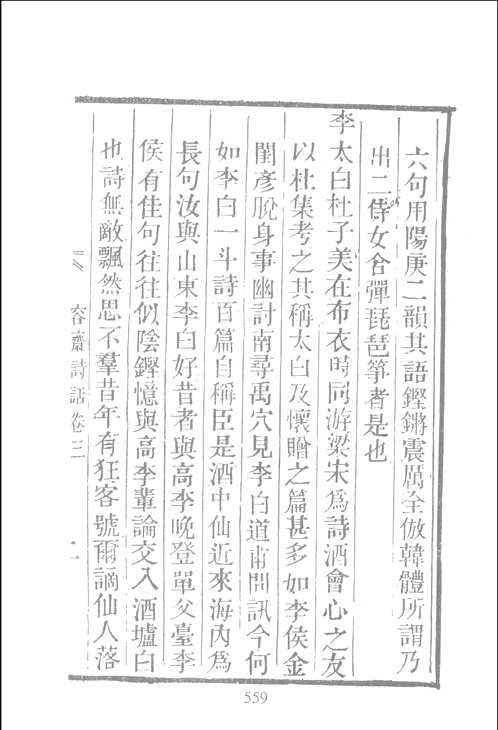 六句用陽庚二韻其語鏗鏘震厲全倣韓體所謂乃
出二侍女合彈琵琶箏者是也
李太白杜子美在布衣時同游梁宋爲詩酒會心之友
以杜集考之其稱太白及懷贈之篇甚多如李侯金
閨彥脫身事幽討南尋禹穴見李白道甫問訊今何
如李白一斗詩百篇自稱臣是酒中仙近來海內爲
長句汝與山東李白好昔者與高李晚登單父臺李
侯有佳句往往似陰鏗憶與高李輩論交入酒壚白
也詩無敵飄然思不羣昔年有狂客號爾謫仙人落
容齋詩話卷三
559